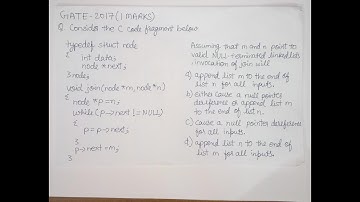 GATE-2017 (1 MARKS)
Q. Consider the C code fragment below
typedef struct node
{
int data;
node *next;
}node;
void join(node *m, node *n)
{
node *p = n;
while(p->next != NULL)
{
p = p->next;
}
p->next = m;
}
Assuming that m and n point to
valid NULL-terminated linked lists
, invocation of join will
a) append list m to the end of
list n for all inputs.
b) either cause a null pointer
dereference or append list m
to the end of list n.
c) cause a null pointer dereference
for all inputs.
d) append list n to the end of
list m for all inputs.